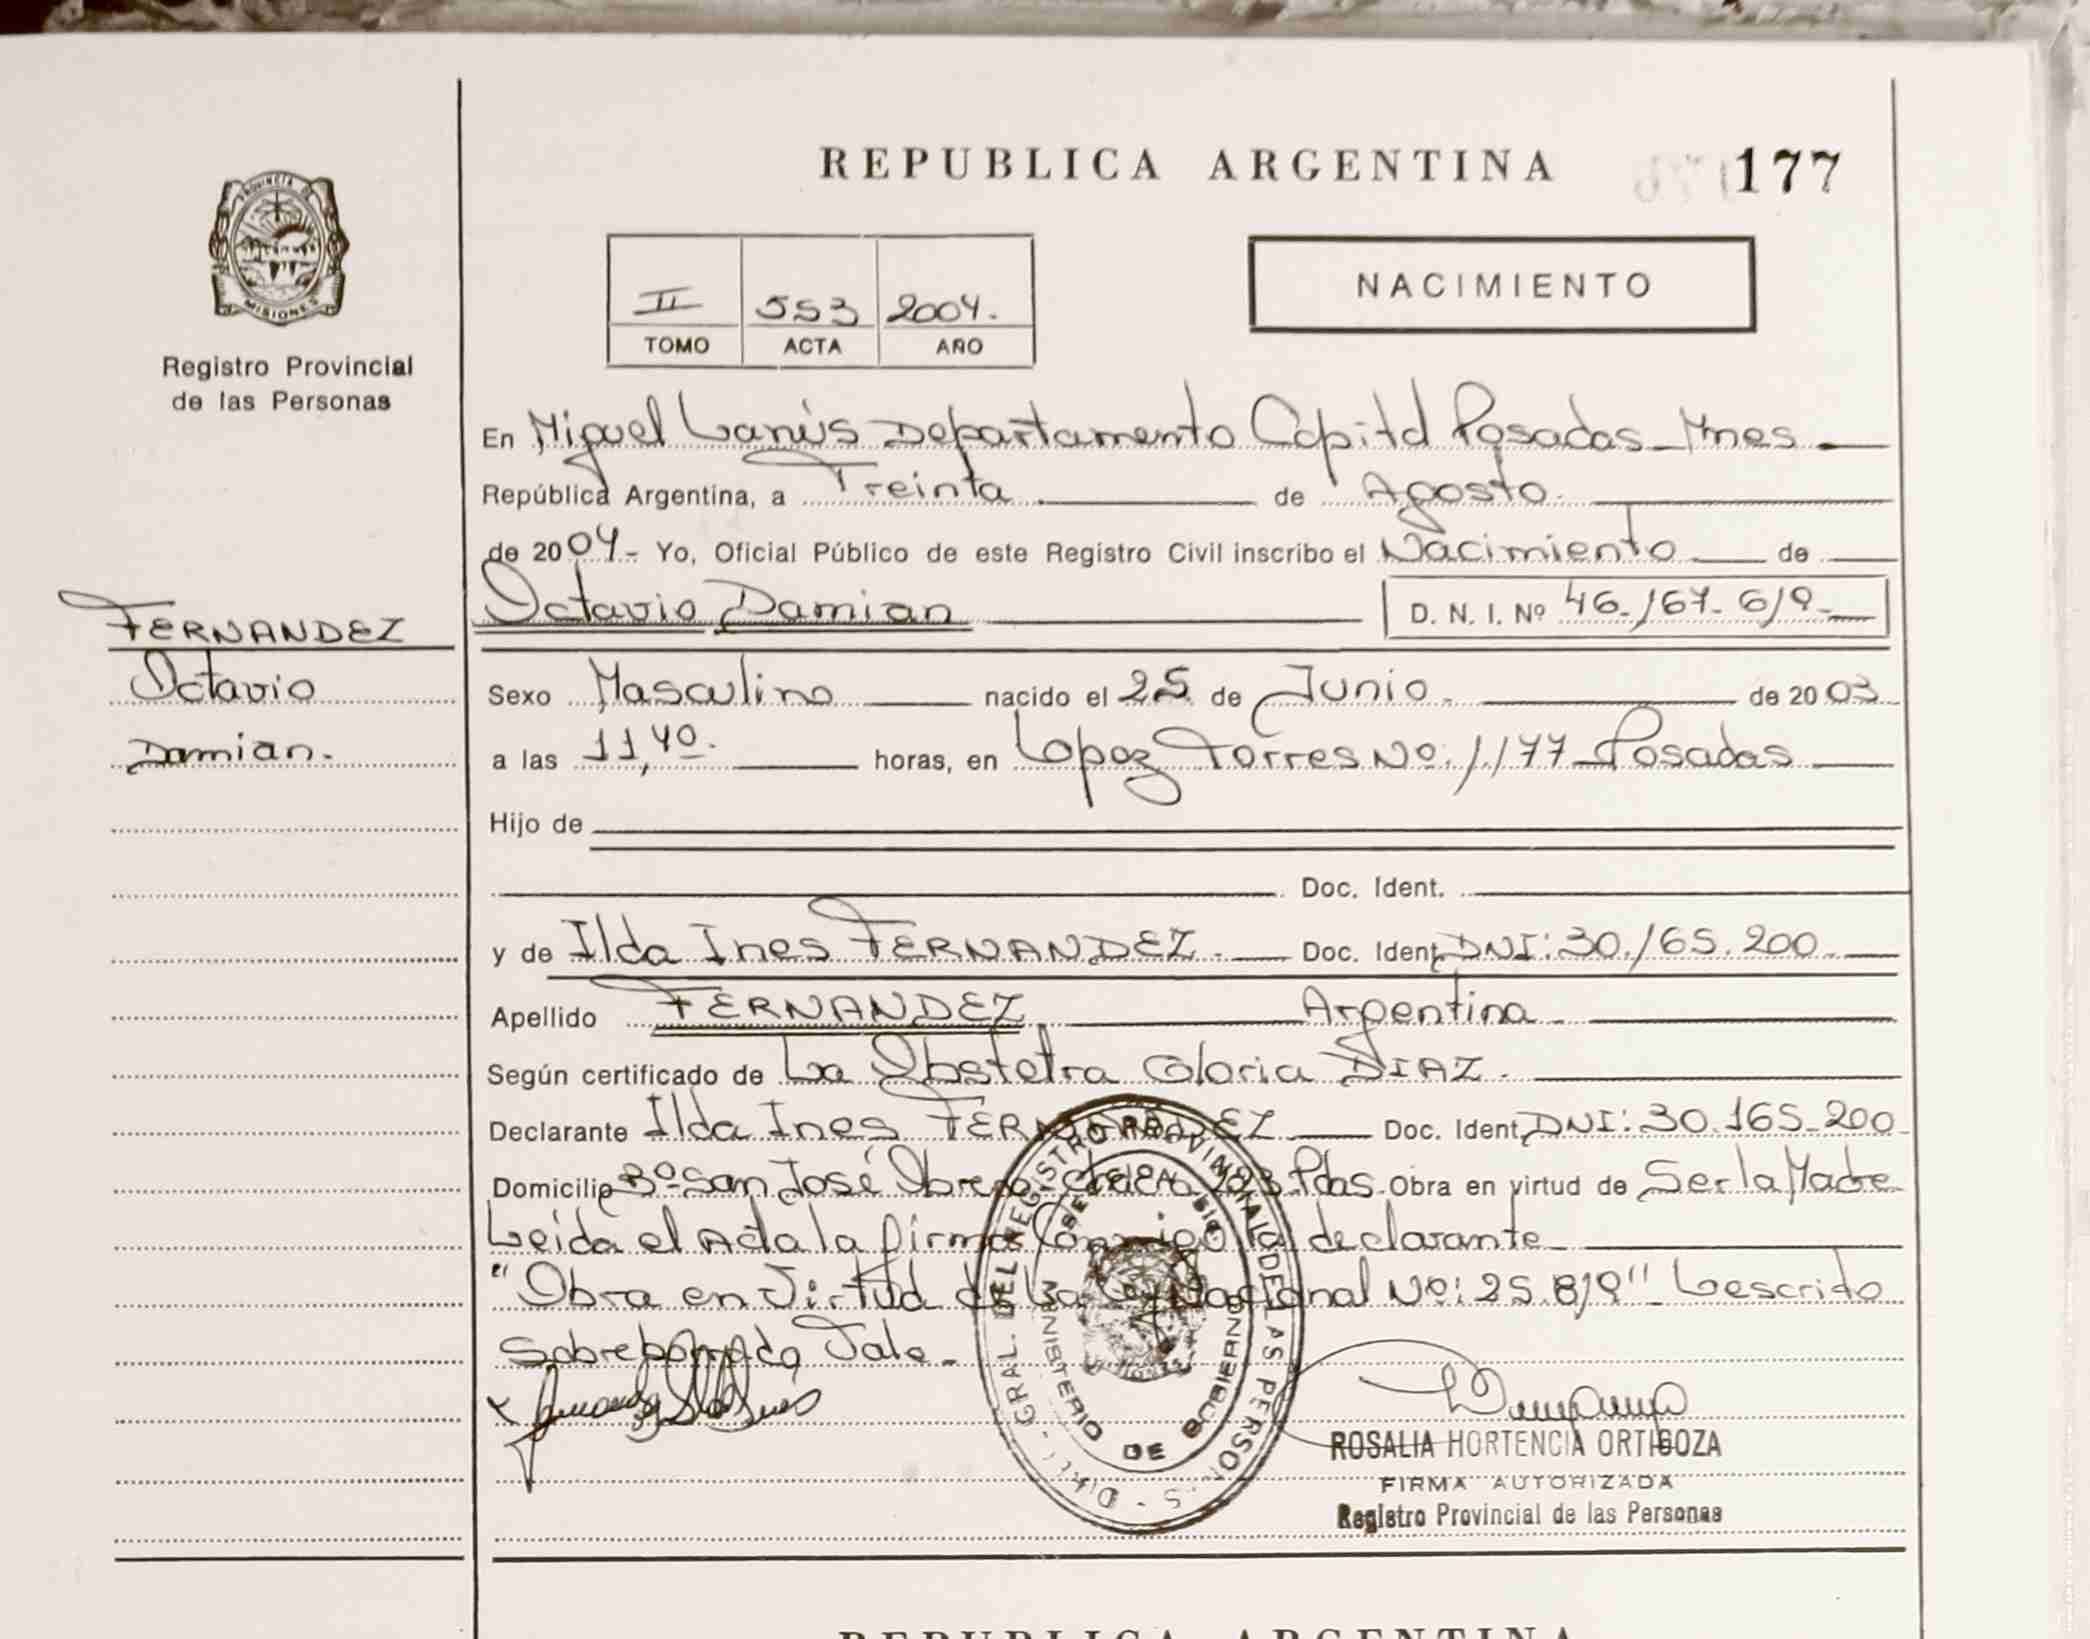 REPUBLICA ARGENTINA
177
PROVINCIA DE
MISIONES
Registro Provincial
de las Personas
II 553 2004.
TOMO ACTA AÑO
NACIMIENTO
En Miguel Lanús Departamento Capital Posadas - Mnes
República Argentina, a Treinta de Agosto.
de 2004.- Yo, Oficial Público de este Registro Civil inscribo el Nacimiento de
Octavio Damian D. N. I. Nº 46.167.619.-
FERNANDEZ
Octavio
Damian.
Sexo Masculino nacido el 25 de Junio. de 2003
a las 11,40. horas, en Lopez Torres No: 1177 - Posadas
Hijo de
Doc. Ident.
y de Ilda Ines FERNANDEZ.- Doc. Ident. DNI: 30.165.200
Apellido FERNANDEZ Argentina
Según certificado de La Obstetra Gloria DIAZ.
Declarante Ilda Ines FERNANDEZ Doc. Ident. DNI: 30.165.200
Domicilio Bº San José Obrero Pdas. Obra en virtud de Ser la Madre
Leída el Acta la firma Conmigo la declarante
"Obra en Virtud de La Ley Nacional No: 25.819" Lo escrito
Sobreborrado Vale.-
GRAL. DEL REGISTRO PROVINCIAL DE LAS PERSONAS
MINISTERIO DE GOBIERNO
ROSALIA HORTENCIA ORTIGOZA
FIRMA AUTORIZADA
Registro Provincial de las Personas
REPUBLICA ARGENTINA